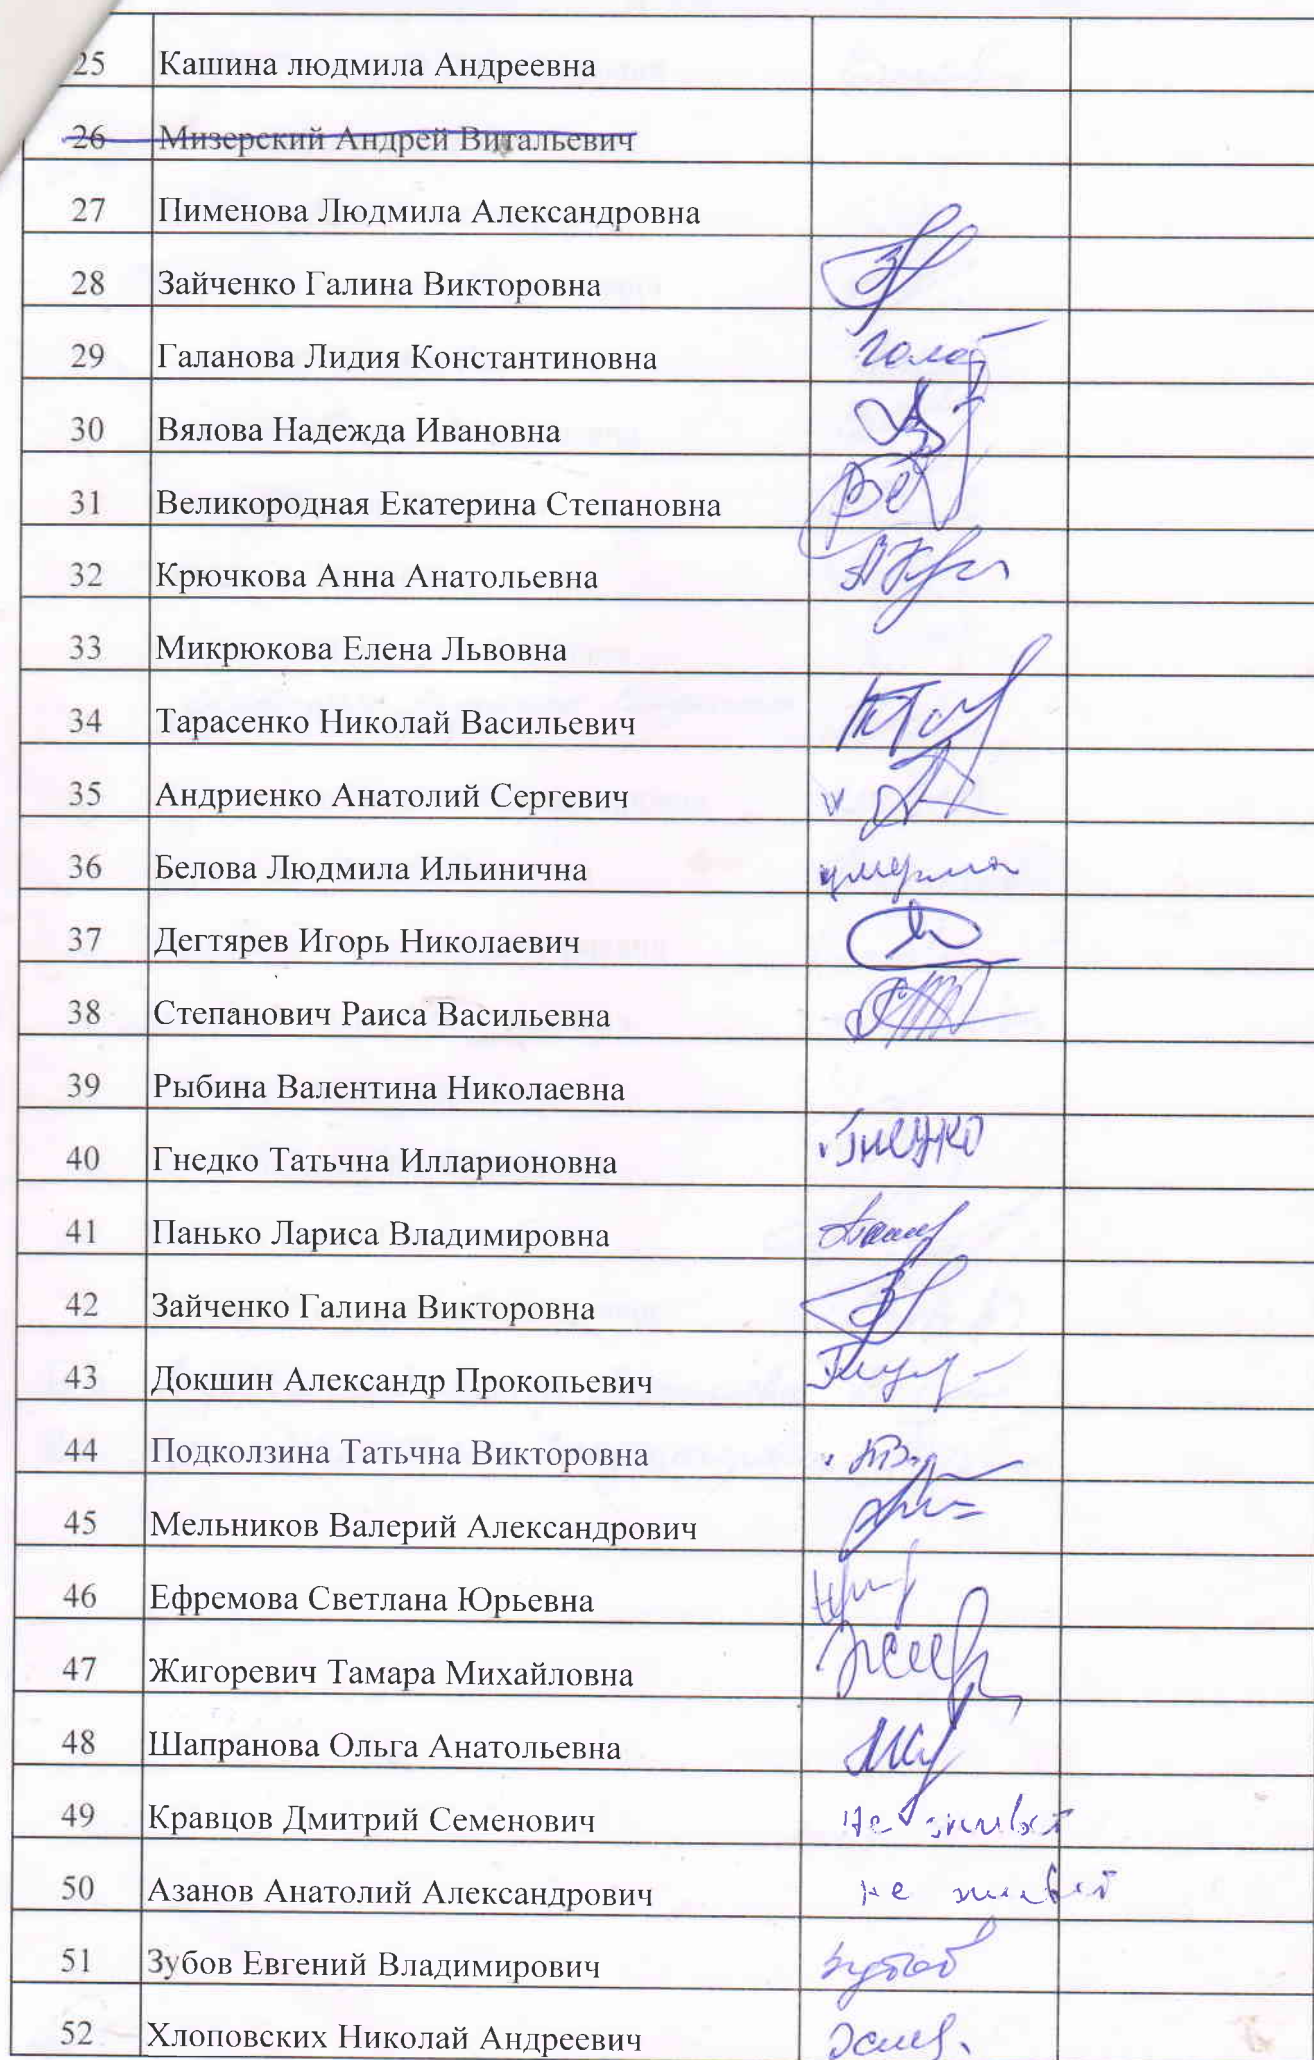 25 Кашина людмила Андреевна
26 Мизерский Андрей Витальевич
27 Пименова Людмила Александровна
28 Зайченко Галина Викторовна
29 Галанова Лидия Константиновна
30 Вялова Надежда Ивановна
31 Великородная Екатерина Степановна
32 Крючкова Анна Анатольевна
33 Микрюкова Елена Львовна
34 Тарасенко Николай Васильевич
35 Андриенко Анатолий Сергевич
36 Белова Людмила Ильинична умерла
37 Дегтярев Игорь Николаевич
38 Степанович Раиса Васильевна
39 Рыбина Валентина Николаевна
40 Гнедко Татьчна Илларионовна Гнедко
41 Панько Лариса Владимировна
42 Зайченко Галина Викторовна
43 Докшин Александр Прокопьевич
44 Подколзина Татьчна Викторовна
45 Мельников Валерий Александрович
46 Ефремова Светлана Юрьевна
47 Жигоревич Тамара Михайловна
48 Шапранова Ольга Анатольевна
49 Кравцов Дмитрий Семенович не
50 Азанов Анатолий Александрович не
51 Зубов Евгений Владимирович
52 Хлоповских Николай Андреевич